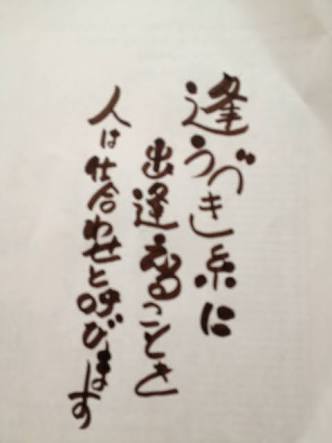 逢うづき糸に
出逢えることを
人は仕合わせと呼びます